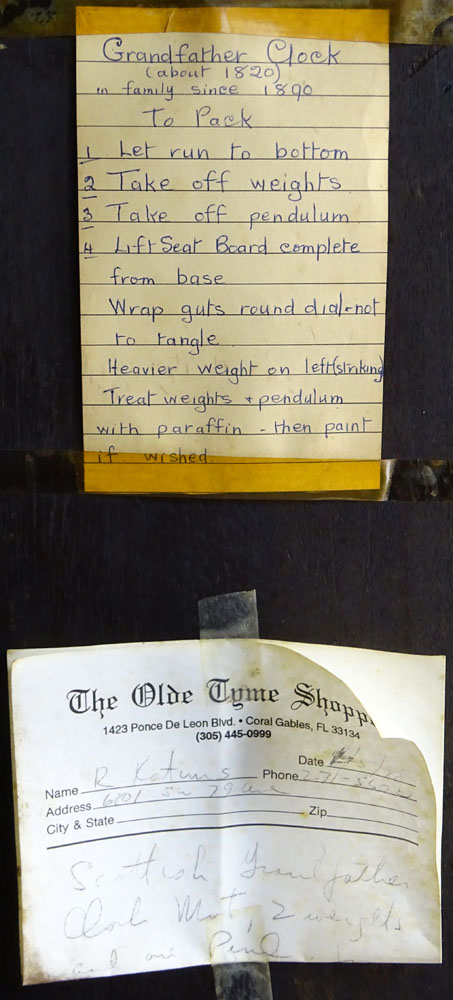 Grandfather Clock
(about 1820)
in family since 1890
To Pack
1 Let run to bottom
2 Take off weights
3 Take off pendulum
4 Lift Seat Board complete
from base
Wrap guts round dial-not
to tangle
Heavier weight on left(striking)
Treat weights + pendulum
with paraffin - then paint
if wished.
The Olde Tyme Shopp
1423 Ponce De Leon Blvd. • Coral Gables, FL 33134
(305) 445-0999
Date
Name R Phone
Address 6801 SW 79 Ave
City & State Zip
Scottish Grandfather
Clock Mvt, 2 weights
and one